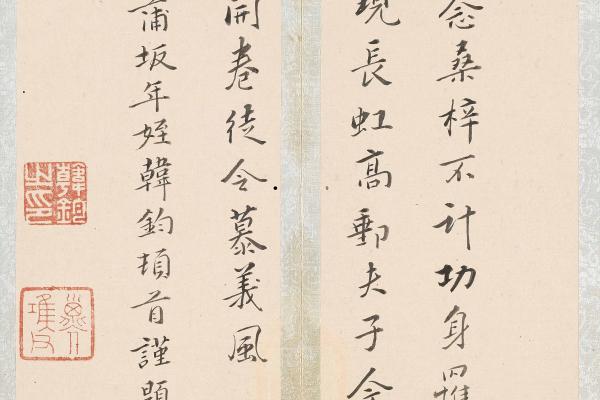 念桑梓不計功身罹
現長虹高郵夫子
開卷徒令慕義風
蒲坂年姪韓鈞頓首謹題
韓鈞之印